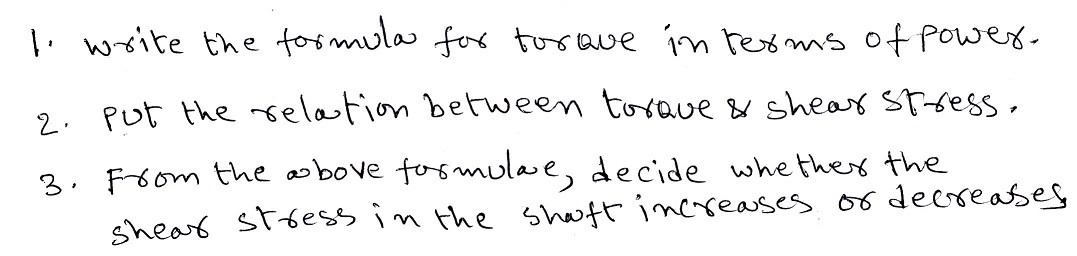 1. write the formula for torque in terms of power.
2. Put the relation between torque & shear stress.
3. From the above formulae, decide whether the
shear stress in the shaft increases or decreases